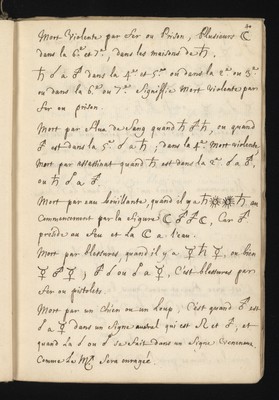 Mort Violente par Fer ou Prison, Plusieurs ☾
dans la 6.e et 7.e, dans les maisons de ♄.
♄ ☌ à ♂ dans la 4.e et 5.e ou dans la 2.e ou 3.e
ou dans la 6.e ou 7.e Signiffie Mort violente par
Fer ou prison.
Mort par Flux de Sang quand ♄ ♂ ♄, ou quand
♂ est dans la 5.e ☌ à ♄, dans la 4.e Mort violente
Mort par assassinat quand ♄ est dans la 2.e ☌ à ♂,
ou ♄ ☌ à ♂.
Mort par eau bouillante, quand il y a ♄ ♄ au
Commencement par la figure ☾ ♂ ♂ ☾, Car ♂
préside au feu et La ☾ a l'eau.
Mort par blessures, quand il y a ☿ ♄ ☿, ou bien
☿ ♂ ☿; ♂ ☌ ou à ☿, C'est blessures par
Fer ou pistolets.
Mort par un Chien ou un Loup, C'est quand ♂ est
☌ à ☿ dans un Signe austral qui est ♌ et ♂, et
quand La ☌ ou se fait dans un Signe
Comme Le ♏ Sera enragée